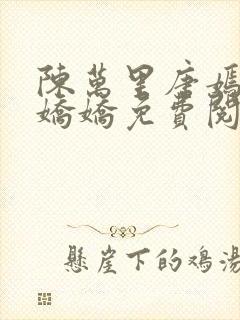 陳萬里唐嫣
嬌嬌免費閱
懸崖下的鸡湯